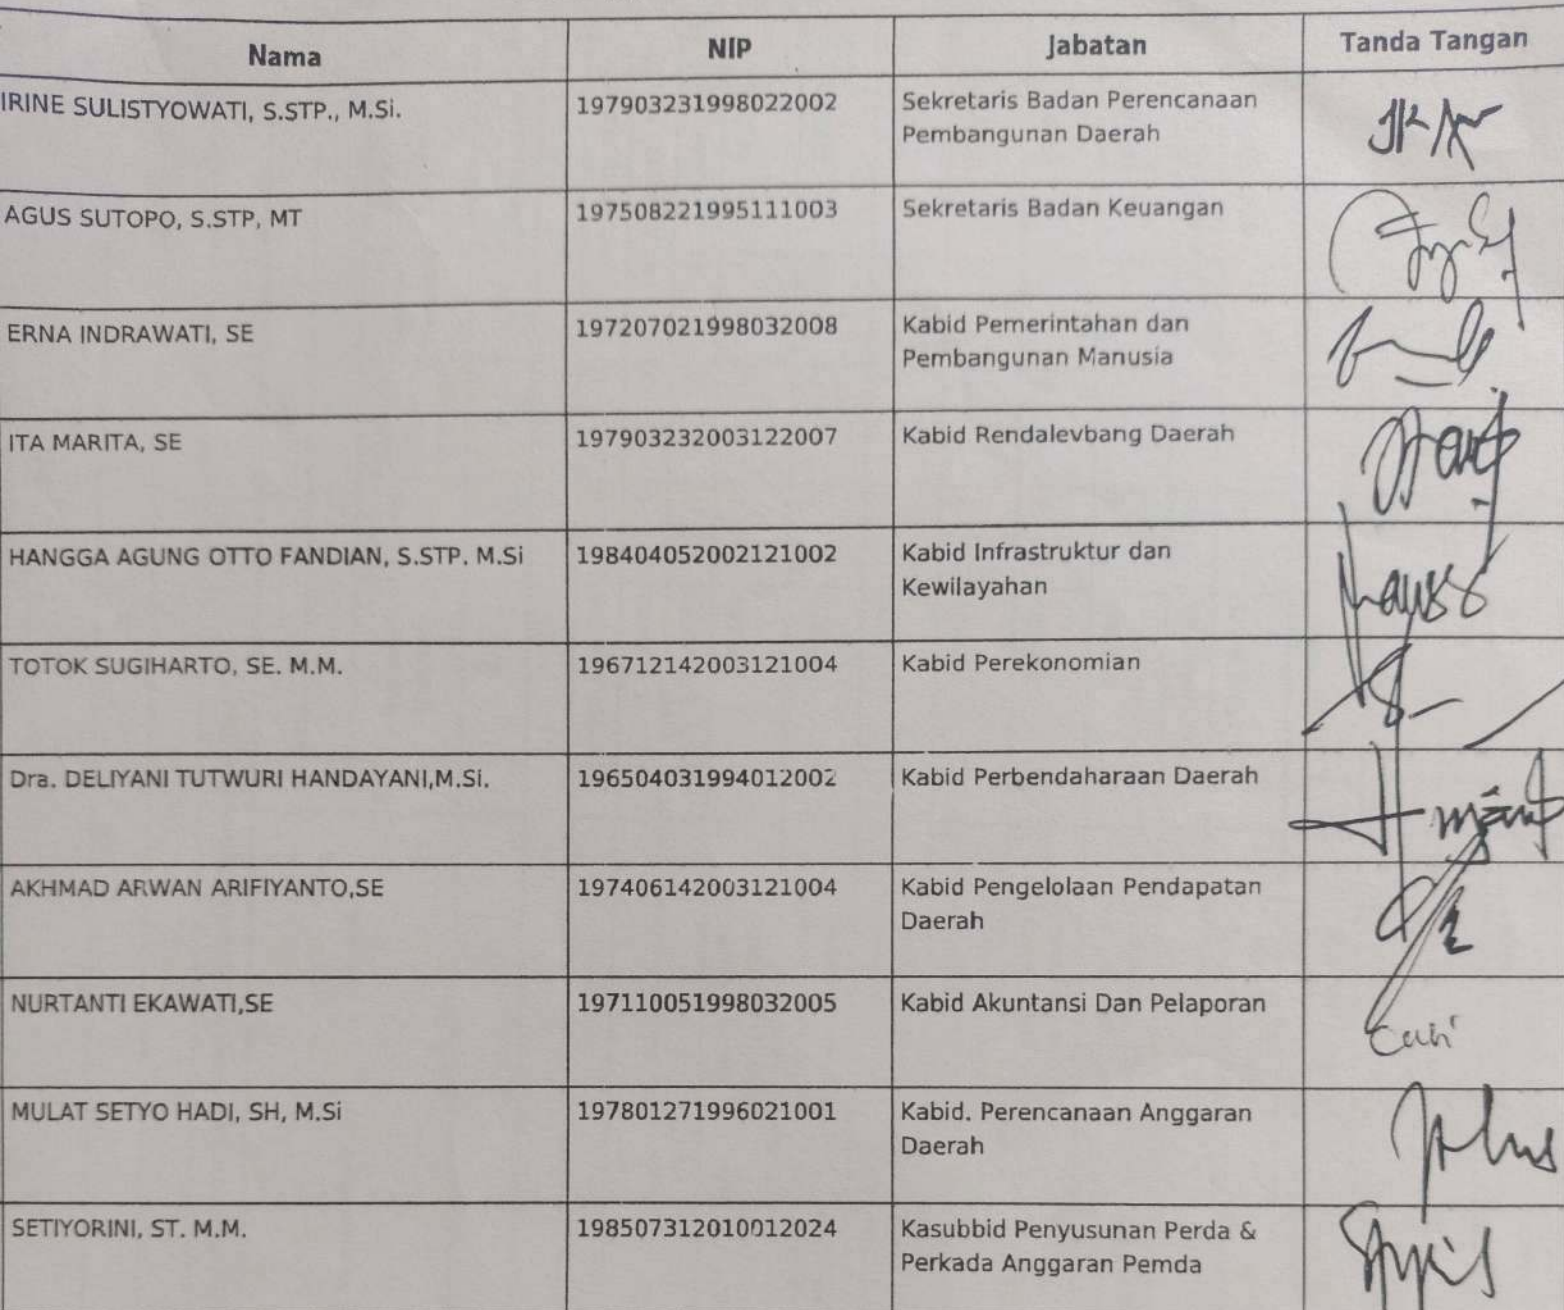 Nama NIP Jabatan Tanda Tangan
IRINE SULISTYOWATI, S.STP., M.Si. 197903231998022002 Sekretaris Badan Perencanaan
Pembangunan Daerah
AGUS SUTOPO, S.STP, MT 197508221995111003 Sekretaris Badan Keuangan
ERNA INDRAWATI, SE 197207021998032008 Kabid Pemerintahan dan
Pembangunan Manusia
ITA MARITA, SE 197903232003122007 Kabid Rendalevbang Daerah
HANGGA AGUNG OTTO FANDIAN, S.STP. M.Si 198404052002121002 Kabid Infrastruktur dan
Kewilayahan
TOTOK SUGIHARTO, SE. M.M. 196712142003121004 Kabid Perekonomian
Dra. DELIYANI TUTWURI HANDAYANI,M.Si. 196504031994012002 Kabid Perbendaharaan Daerah
AKHMAD ARWAN ARIFIYANTO,SE 197406142003121004 Kabid Pengelolaan Pendapatan
Daerah
NURTANTI EKAWATI,SE 197110051998032005 Kabid Akuntansi Dan Pelaporan
MULAT SETYO HADI, SH, M.Si 197801271996021001 Kabid. Perencanaan Anggaran
Daerah
SETIYORINI, ST. M.M. 198507312010012024 Kasubbid Penyusunan Perda &
Perkada Anggaran Pemda